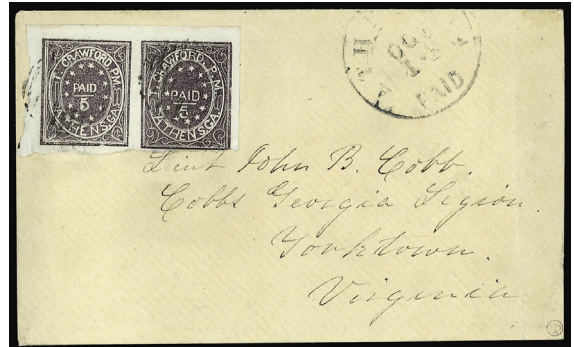 T. CRAWFORD, P.M. PAID 5 ATHENS, GA.
T. CRAWFORD, P.M. PAID 5 ATHENS, GA.
PAID
Lieut John B. Cobb.
Cobbs Georgia Legion.
Yorktown.
Virginia